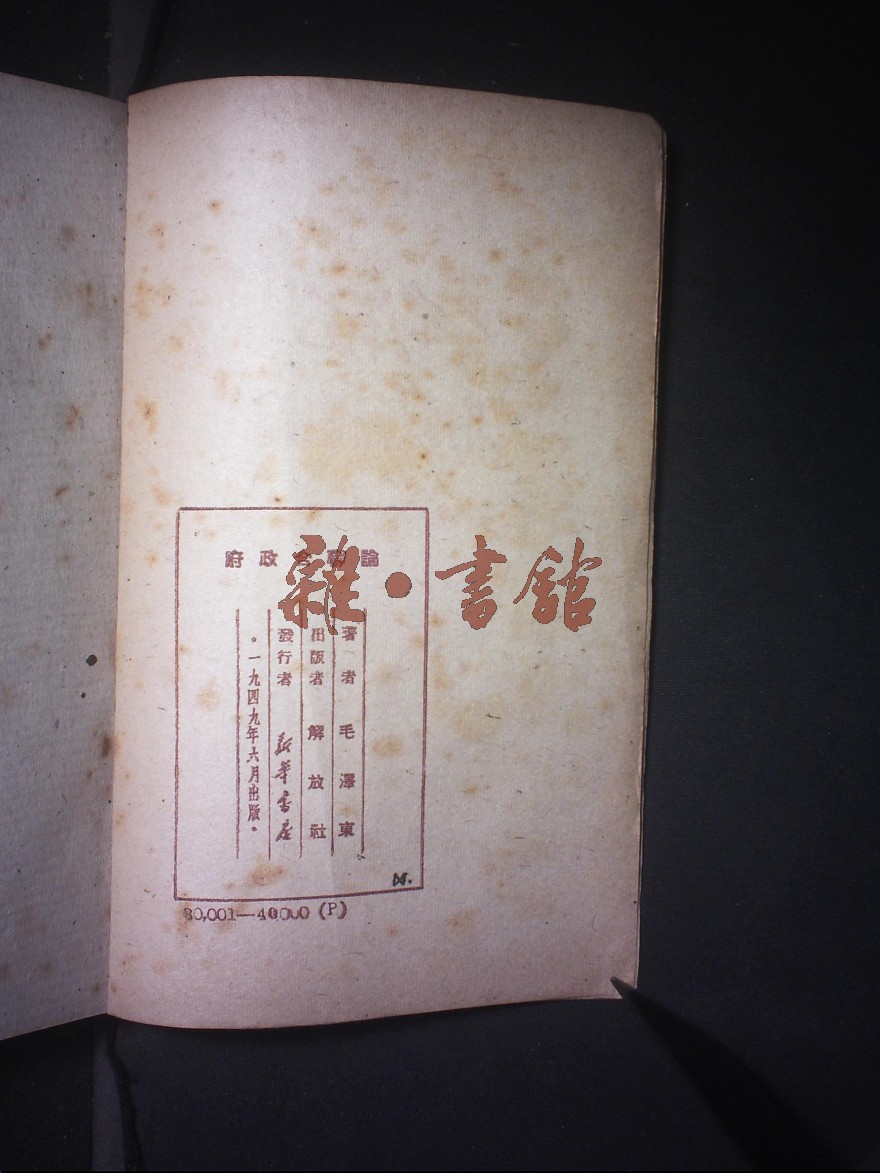 論聯合政府
著者 毛澤東
出版者 解放社
發行者 新華書店
·一九四九年六月出版·
30,001—40,000 (P)
雜·書館